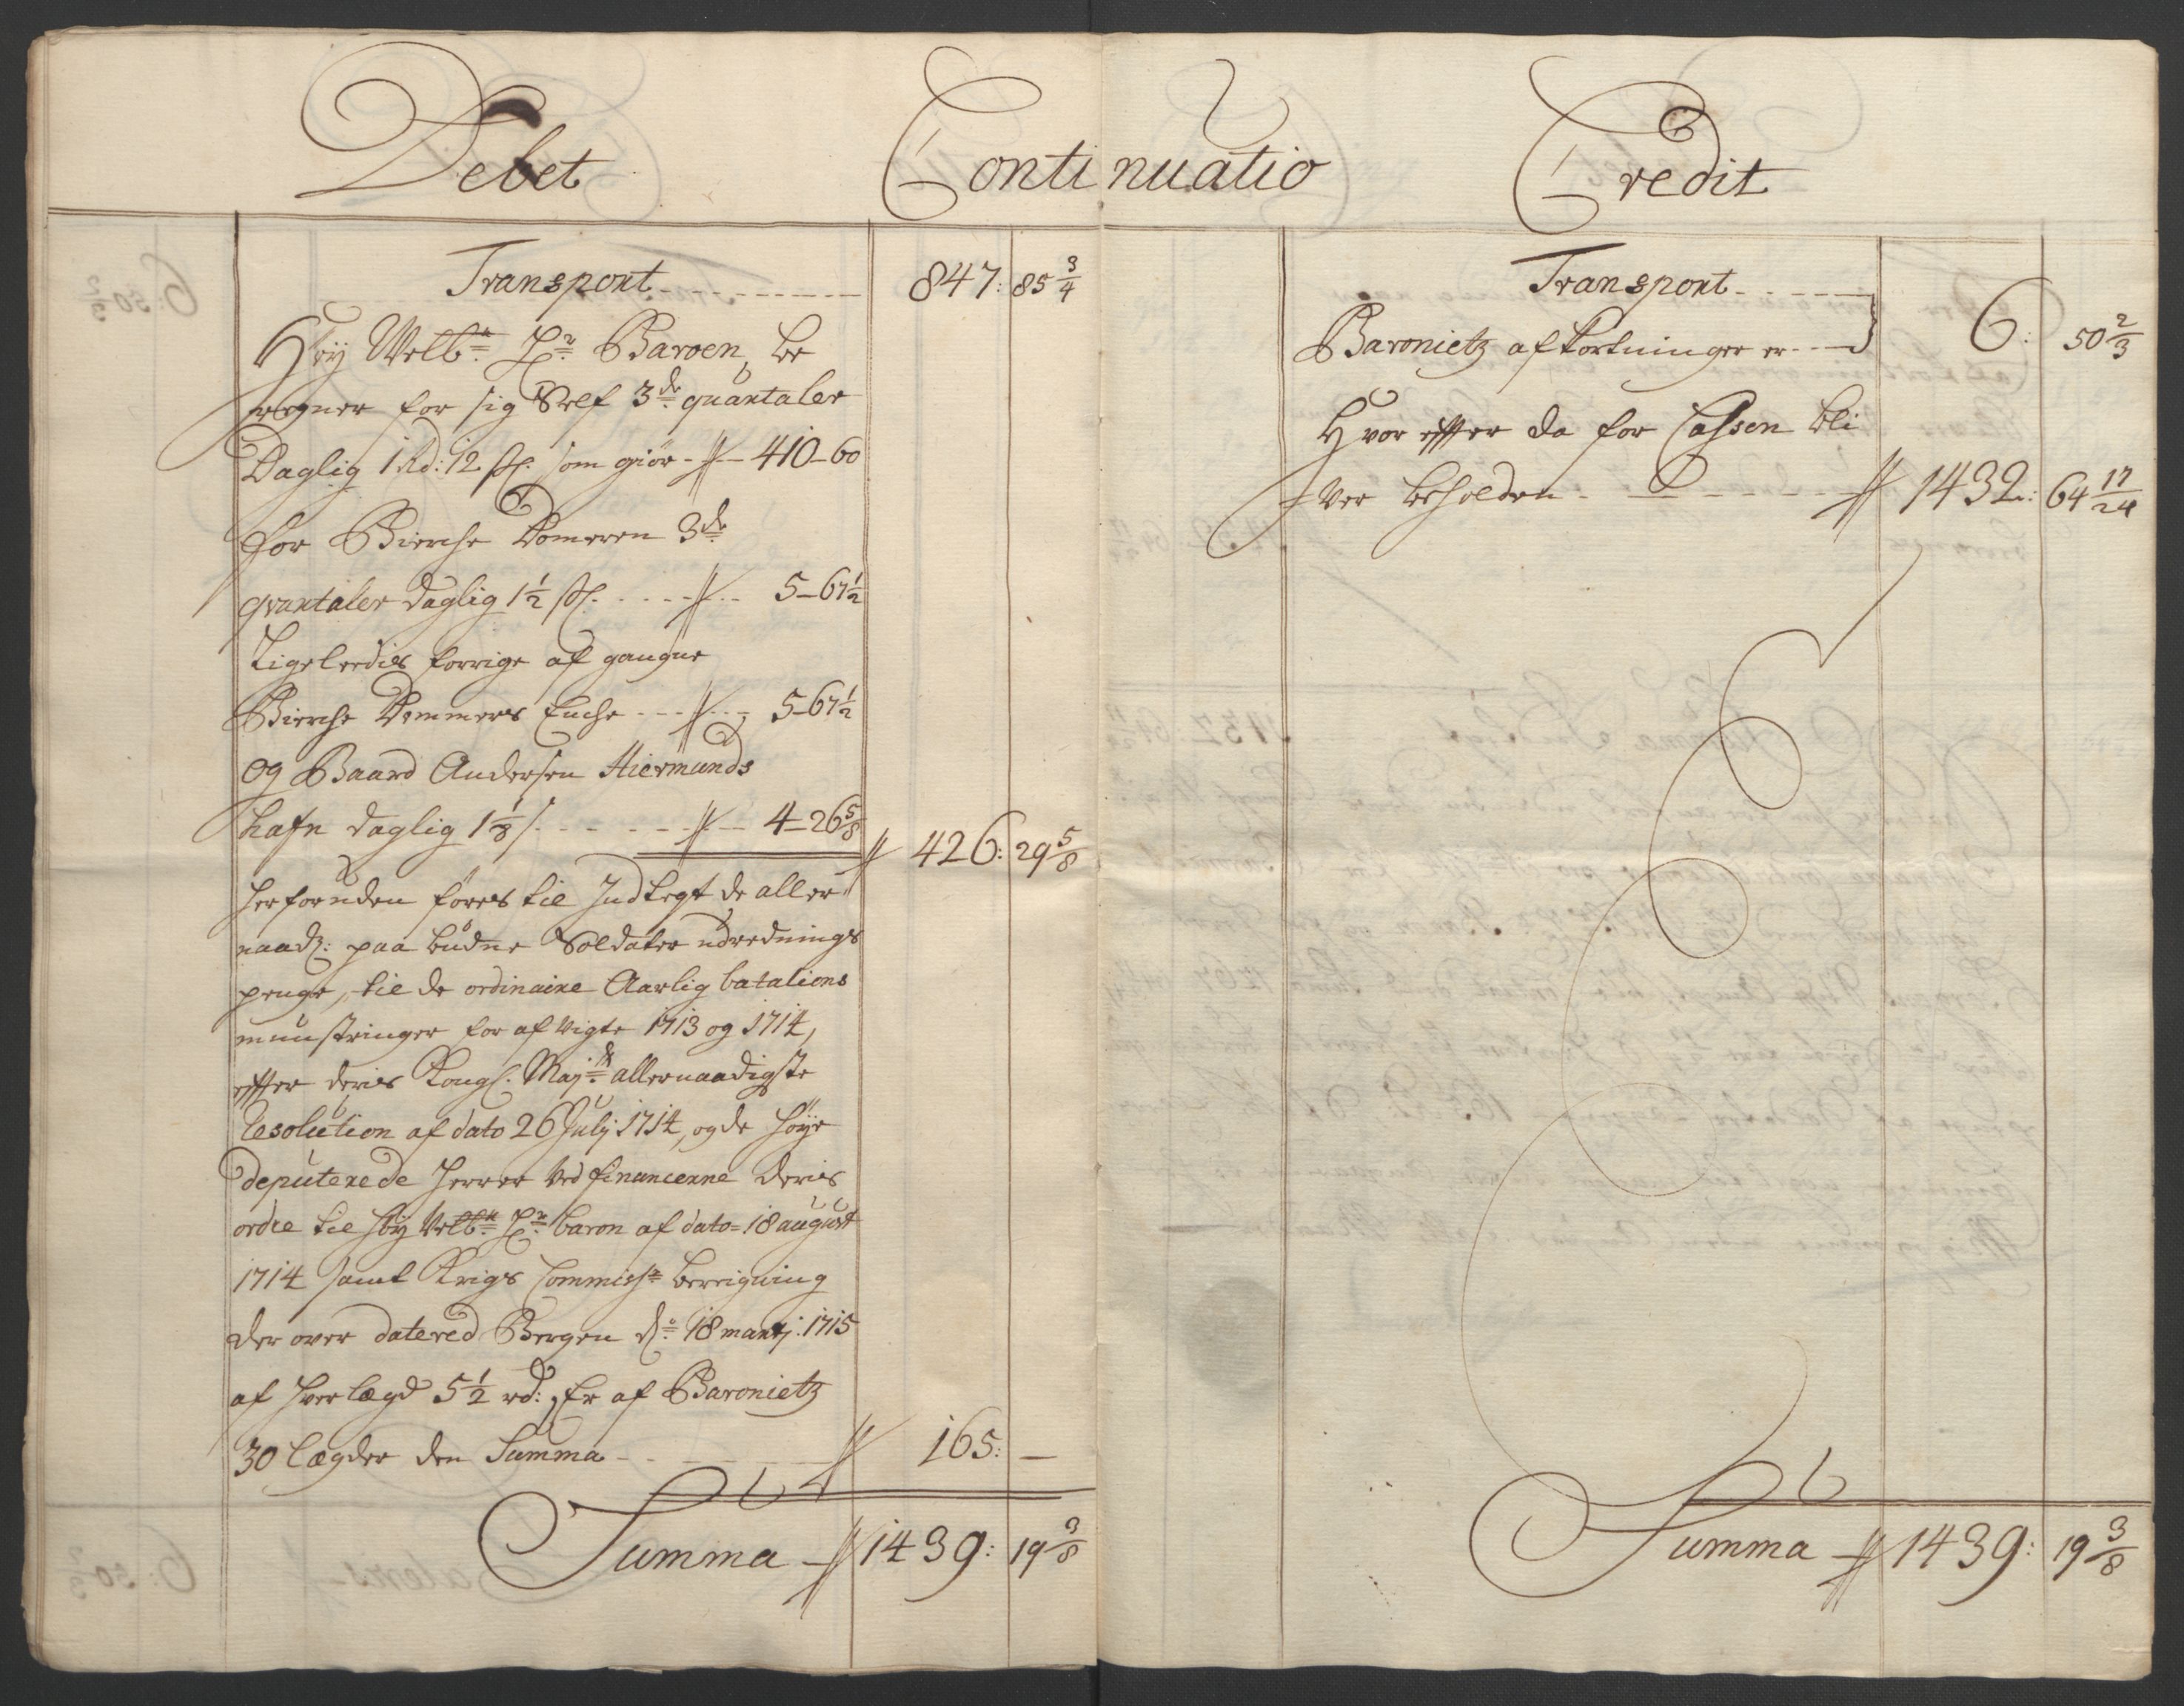 Debet Continuatio Credit
Transport 847: 85 3/4
Høy Welb:n Hr: Baroen, be
regner for sig Self 3de quartaler
Daglig 1 Rd: 12 sk. som giör - 410-60
For Bierche Domeren 3de
qvartaler daglig 1 1/2 sk. 5-67 1/2
Ligeleedis forrige af gangne
Bierche Dommers Enche 5-67 1/2
og Baard Andersen Hiermunds
hafn daglig 1 1/8 s. 4-26 5/8
426: 29 5/8
Herforuden føres til Indtegt de aller
naadz: paa budne Soldater udrednings
penge, til de ordinaire Aarlig batalions
munstringer for af vigte 1713 og 1714,
effter deris Kongl. Maj:ts allernaadigste
Resolution af dato 26 July 1714, og de høye
deputerede Herrer ved financerne deris
ordre til høy Welb:n Hr: baron af dato = 18 august
1714 samt Krigs Commiss: bereigning
der over datered Bergen d: 18 martj: 1715
af hver lægd 5 1/2 rd: , Er af Baronietz
30 lægder den Summa 165: —
Summa 1439: 19 3/8
Transport
Baronietz afkortninger er 6: 50 2/3
Hvor effter da for Cassen bli
ver beholden 1432: 64 17/24
Summa 1439: 19 3/8